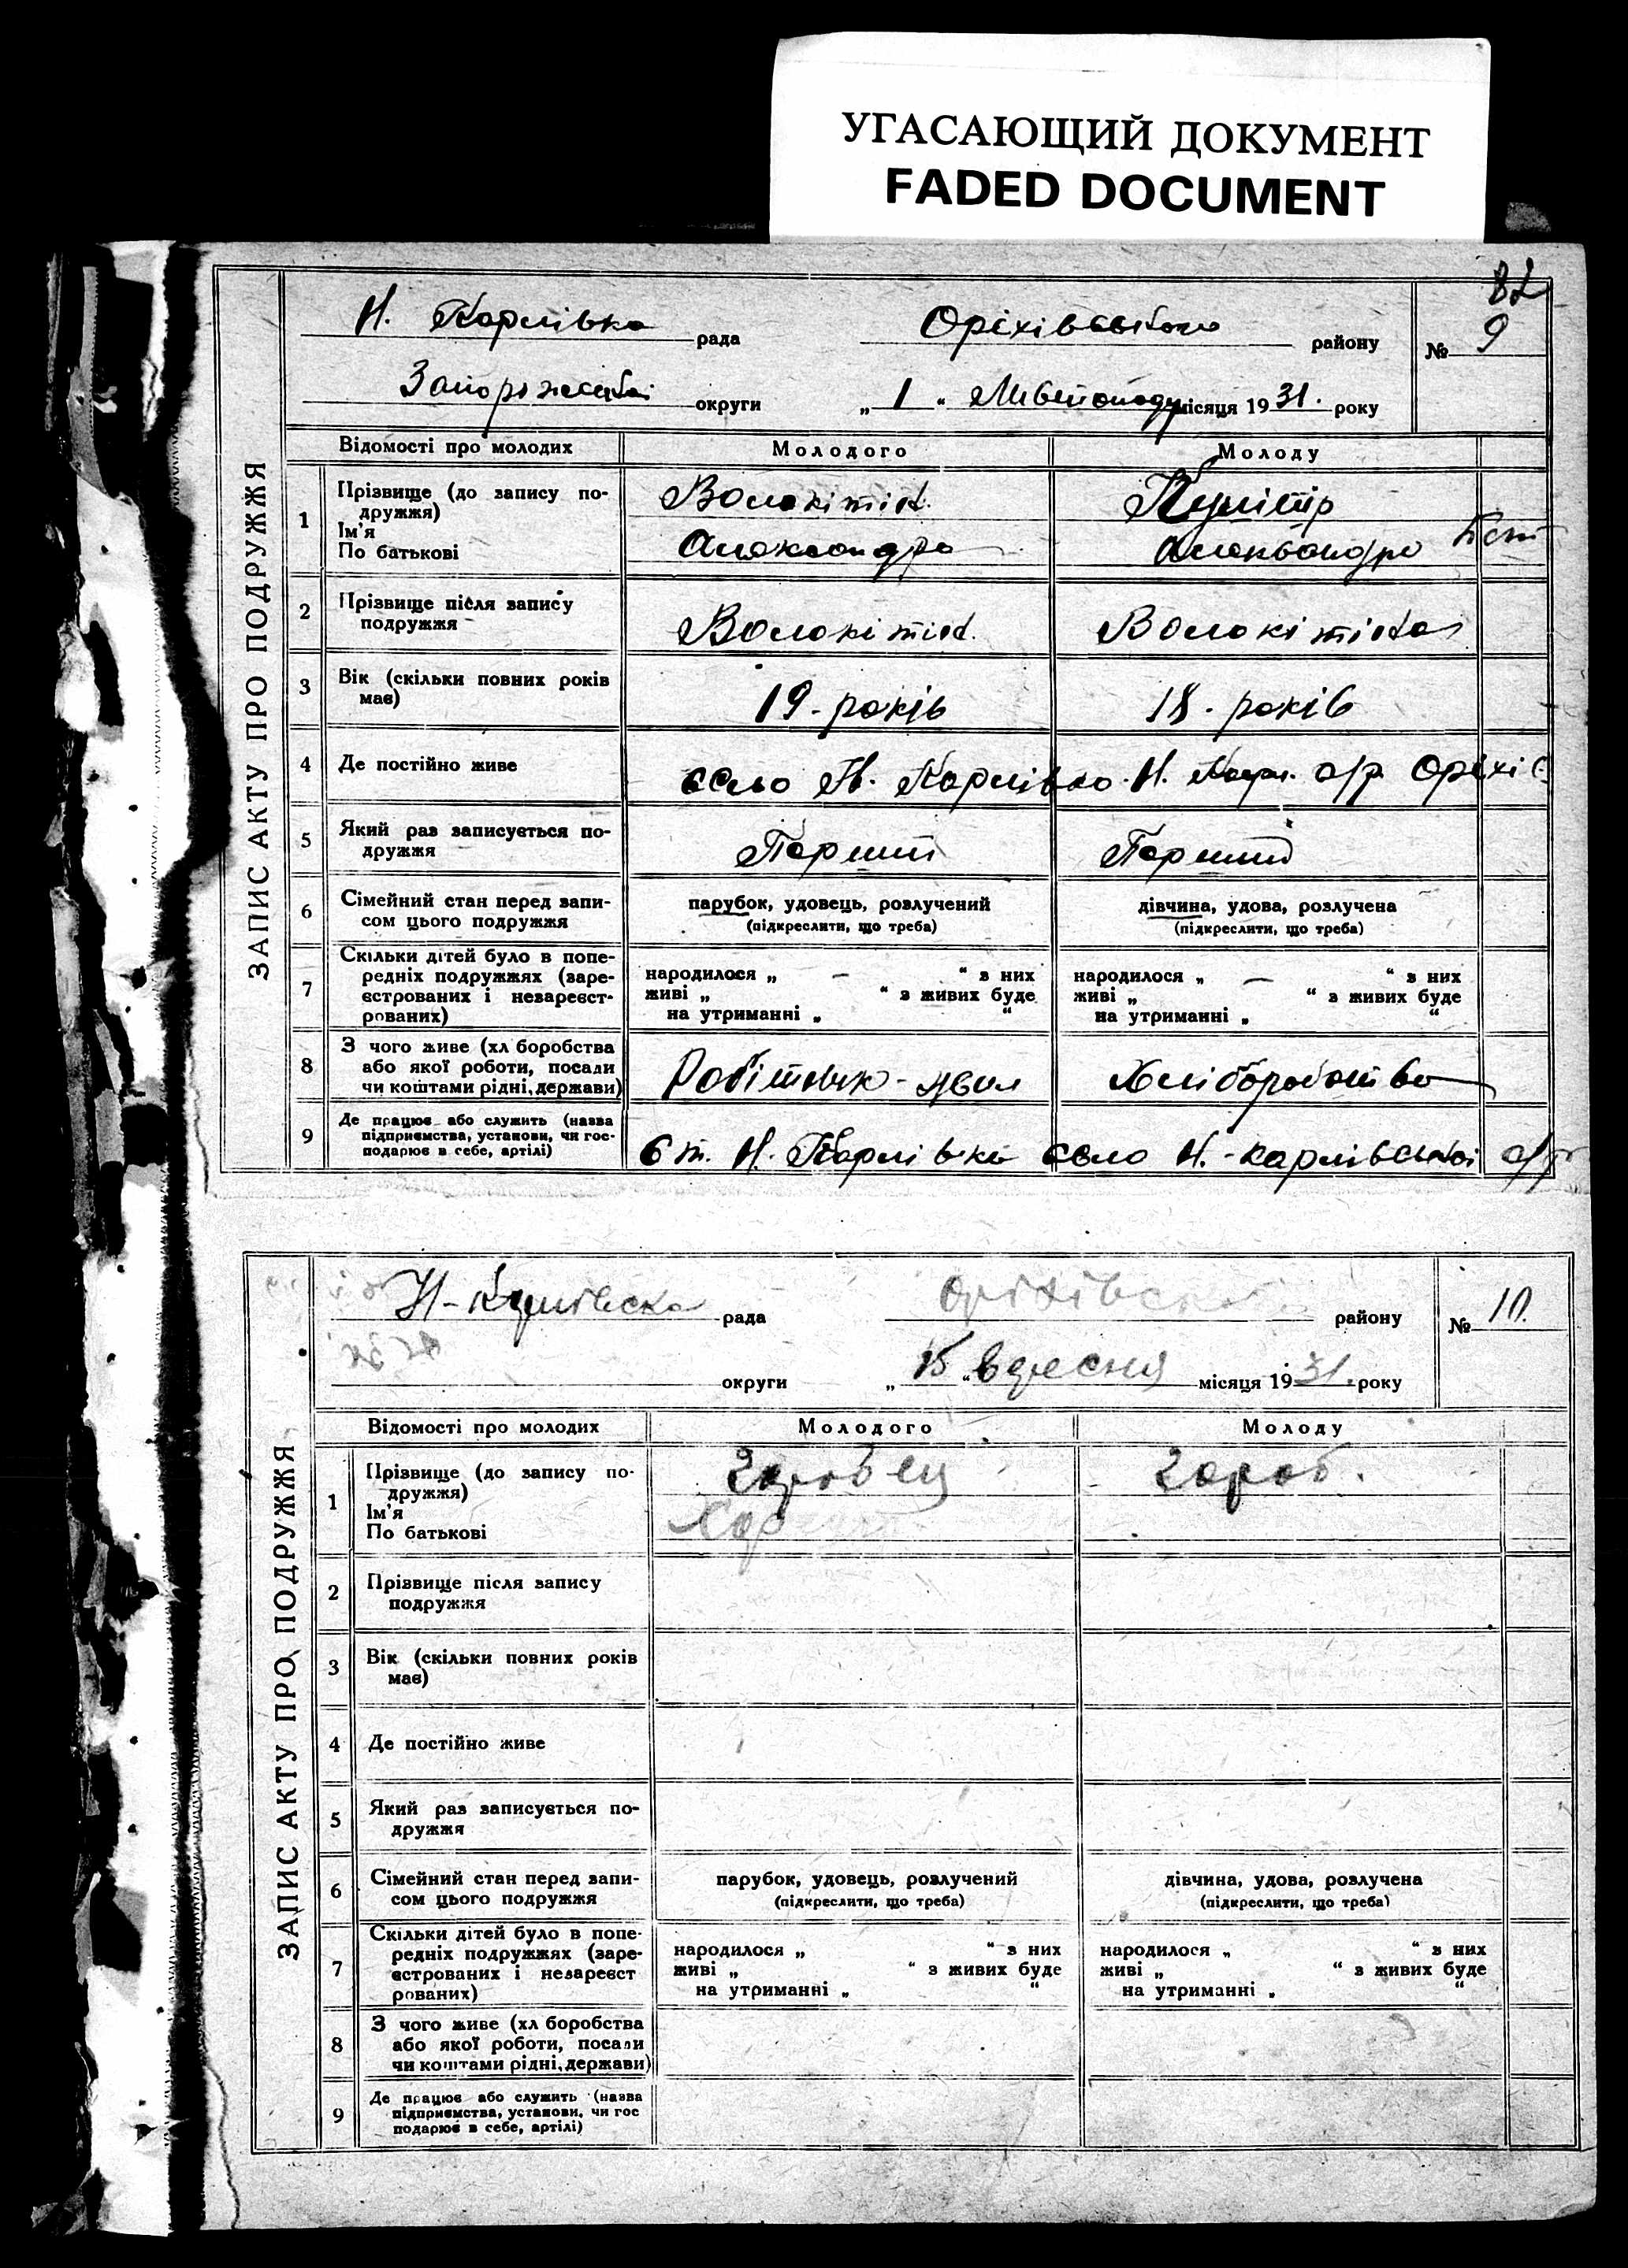 УГАСАЮЩИЙ ДОКУМЕНТ
FADED DOCUMENT
ЗАПИС АКТУ ПРО ПОДРУЖЖЯ
Н. Карлівка рада Оріхівського району № 9
Запоріжської округи „ 1 “ Листопаду місяця 19 31. року
Відомості про молодих Молодого Молоду
1 Прізвище (до запису по-
дружжя)
Ім'я
По батькові
Волокітін.
Александра
Александра
2 Прізвище після запису
подружжя
Волокітін. Волокітіна
3 Вік (скільки повних років
має)
19 - років 18 - років
4 Де постійно живе село Н. Карлівка Н. Карл. с/р. Оріхів
5 Який раз записується по-
дружжя
Перший Перший
6 Сімейний стан перед запи-
сом цього подружжя
парубок, удовець, розлучений
(підкреслити, що треба)
дівчина, удова, розлучена
(підкреслити, що треба)
7 Скільки дітей було в попе-
редніх подружжях (заре-
єстрованих і незареєст-
рованих)
народилося „ — “ з них
живі „ “ з живих буде
на утриманні „ “
народилося „ — “ з них
живі „ “ з живих буде
на утриманні „ “
8 З чого живе (хл боробства
або якої роботи, посади
чи коштами рідні, держави)
Робітник - Хліборобство
9 Де працює або служить (назва
підприємства, установи, чи гос-
подарює в себе, артілі)
ст. Н. Карлівка село Н. - Карлівської с/р
ЗАПИС АКТУ ПРО ПОДРУЖЖЯ
рада Оріхівського району № 10.
округи „ 15 “ вересня місяця 19 31. року
Відомості про молодих Молодого Молоду
1 Прізвище (до запису по-
дружжя)
Ім'я
По батькові
2 Прізвище після запису
подружжя
3 Вік (скільки повних років
має)
4 Де постійно живе
5 Який раз записується по-
дружжя
6 Сімейний стан перед запи-
сом цього подружжя
парубок, удовець, розлучений
(підкреслити, що треба)
дівчина, удова, розлучена
(підкреслити, що треба)
7 Скільки дітей було в попе-
редніх подружжях (заре-
єстрованих і незареєст
рованих)
народилося „ “ з них
живі „ “ з живих буде
на утриманні „ “
народилося „ “ з них
живі „ “ з живих буде
на утриманні „ “
8 З чого живе (хл боробства
або якої роботи, посади
чи коштами рідні, держави)
9 Де працює або служить (назва
підприємства, установи, чи гос
подарює в себе, артілі)